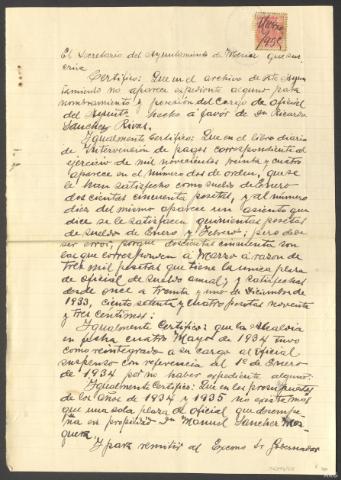 El Secretario del Ayuntamiento de que sus
cribe
Certifico: Que en el archivo de este Ayun
tamiento no aparece expediente alguno para
nombramiento y posesión del cargo de oficial
del hecho a favor de Dn Ricardo
Sanchez Rivas.
Igualmente Certifico: Que en el libro diario
de Intervención de pagos correspondiente al
ejercicio de mil novecientos treinta y cuatro
aparece en el número dos de orden, que se
le han satisfecho como sueldo de Enero
doscientas cincuenta pesetas, y al número
diez del mismo aparece un asiento que
dice se le satisfacen quinientas pesetas
de sueldo de Enero y Febrero; pero debe
ser error, porque doscientas cincuenta son
las que corresponden á Marzo á razón de
tres mil pesetas que tiene la única plaza
de oficial de sueldo anual; y satisfechas
desde once a treinta y uno de Diciembre de
1933, ciento setenta y cuatro pesetas noventa
y tres centimos:
Igualmente Certifico: que la Alcaldía
en fecha cuatro Mayo de 1934 tuvo
como reintegrado a su cargo al oficial
suspenso con referencia al 1º de Enero
de 1934 por no haber expediente alguno:
Igualmente Certifico: Que en los presupuestos
de los años de 1934 y 1935 no existe mas
que una sola plaza de oficial que desempe
ña en propiedad Dn Manuel Sanchez Mos
quera.
Y para remitir al Excmo Sr Gobernador